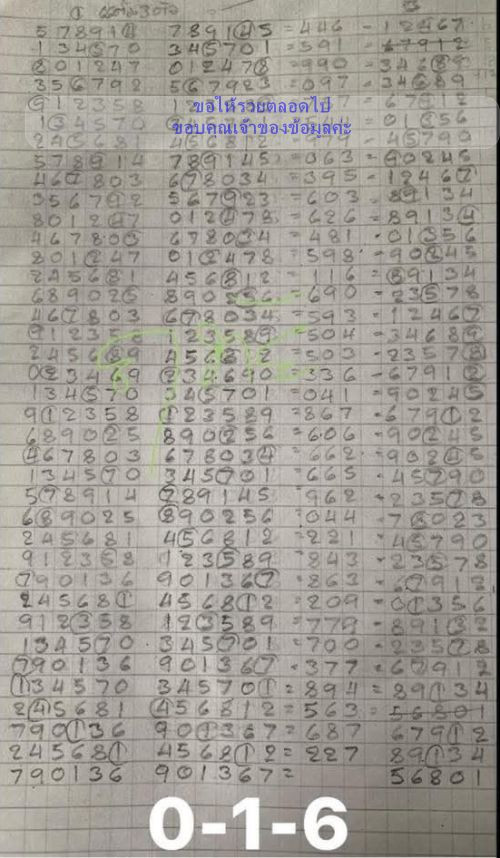 578914 789145=446-12467
134570 345701=591-67912
801247 012478=990=34689
356792 567923=097-34689
ขอให้รวยตลอดไป
ขอบคุณเจ้าของข้อมูลค่ะ
578914 789145=063-90245
467803 678034=395-12467
356792 567923=603-89134
801247 012478=626=89134
467803 678034=481-01356
801247 012478=598-90245
245681 456812=116=89134
689025 890256-690-23578
467803 678034=593-12467
912358 123589-504-34689
245689 456812=503-23578
023469 234690=336-67912
134570 345701=041-90245
912358 123589=867-67912
689025 890256=606=90245
467803 678034=662-90245
134570 345701=665-45790
578914 789145=962-23578
689025 890256=044=78023
245681 456812=221-45790
912358 123589=843-23578
790136 901367=863-67912
245681 456812=209-01356
912358 123589=779-89132
134570 345701=700-23578
790136 901367-377-67912
134570 345701=894=89134
245681 456812=563-56801
790136 901367=687 67912
245681 456812=227 89134
790136 901367= 56801
0-1-6